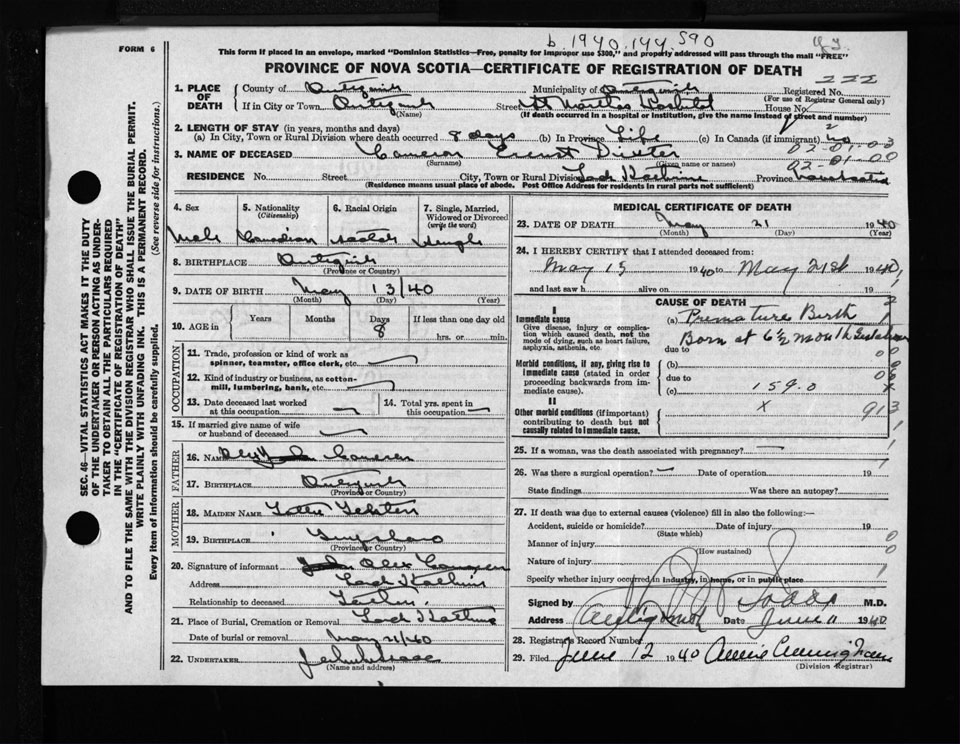 b. 1940. 144 590
FORM 6
This form if placed in an envelope, marked "Dominion Statistics—Free, penalty for improper use $300," and properly addressed will pass through the mail "FREE"
PROVINCE OF NOVA SCOTIA—CERTIFICATE OF REGISTRATION OF DEATH
222
1. PLACE OF DEATH
County of Antigonish Municipality of Antigonish Registered No.
(For use of Registrar General only)
If in City or Town Antigonish Street St Marthas Hospital House No.
(Name) (If death occurred in a hospital or Institution, give the name instead of street and number)
2. LENGTH OF STAY (in years, months and days)
(a) In City, Town or Rural Division where death occurred 8 days (b) In Province Life (c) In Canada (if immigrant) no
02-01-03
3. NAME OF DECEASED Cameron Ernest Dixter
(Surname) (Given name or names)
02-01-00
RESIDENCE No. Street City, Town or Rural Division Province Nova Scotia
(Residence means usual place of abode. Post Office Address for residents in rural parts not sufficient)
4. Sex 5. Nationality (Citizenship) 6. Racial Origin 7. Single, Married, Widowed or Divorced (write the word)
Male Canadian Scotch Single
8. BIRTHPLACE Antigonish
(Province or Country)
9. DATE OF BIRTH May 13/40
(Month) (Day) (Year)
10. AGE in Years Months Days If less than one day old
8 hrs. or min.
OCCUPATION
11. Trade, profession or kind of work as spinner, teamster, office clerk, etc.
12. Kind of industry or business, as cotton-mill, lumbering, bank, etc.
13. Date deceased last worked at this occupation 14. Total yrs. spent in this occupation
15. If married give name of wife or husband of deceased
FATHER
16. NAME Cameron
17. BIRTHPLACE Antigonish
(Province or Country)
MOTHER
18. MAIDEN NAME
19. BIRTHPLACE Guysboro
(Province or Country)
20. Signature of informant Alex Cameron
Address
Relationship to deceased Father
21. Place of Burial, Cremation or Removal
Date of burial or removal May 21/40
22. UNDERTAKER
(Name and address)
MEDICAL CERTIFICATE OF DEATH
23. DATE OF DEATH May 21 1940
(Month) (Day) (Year)
24. I HEREBY CERTIFY that I attended deceased from:
May 15 1940 to May 21st 1940
and last saw h alive on 19
CAUSE OF DEATH
I
Immediate cause (a) Premature Birth
Give disease, injury or complication which caused death, not the mode of dying, such as heart failure, asphyxia, asthenia, etc.
Born at 6½ month Gestation
due to
Morbid conditions, if any, giving rise to immediate cause (stated in order proceeding backwards from immediate cause).
(b)
due to
(c) 159.0
II
Other morbid conditions (if important) contributing to death but not causally related to immediate cause.
x 913
25. If a woman, was the death associated with pregnancy?
26. Was there a surgical operation? Date of operation 19
State findings Was there an autopsy?
27. If death was due to external causes (violence) fill in also the following:—
Accident, suicide or homicide? Date of injury 19
(State which)
Manner of injury
(How sustained)
Nature of injury
Specify whether injury occurred in industry, in home, or in public place
Signed by M.D.
Address Antigonish Date June 11 1940
28. Registrar's Record Number
29. Filed June 12 1940 Annie Cunningham
(Division Registrar)
SEC. 46—VITAL STATISTICS ACT MAKES IT THE DUTY
OF THE UNDERTAKER OR PERSON ACTING AS UNDERTAKER TO OBTAIN ALL THE PARTICULARS REQUIRED
IN THE "CERTIFICATE OF REGISTRATION OF DEATH"
AND TO FILE THE SAME WITH THE DIVISION REGISTRAR WHO SHALL ISSUE THE BURIAL PERMIT.
WRITE PLAINLY WITH UNFADING INK. THIS IS A PERMANENT RECORD.
Every item of Information should be carefully supplied. (See reverse side for instructions.)